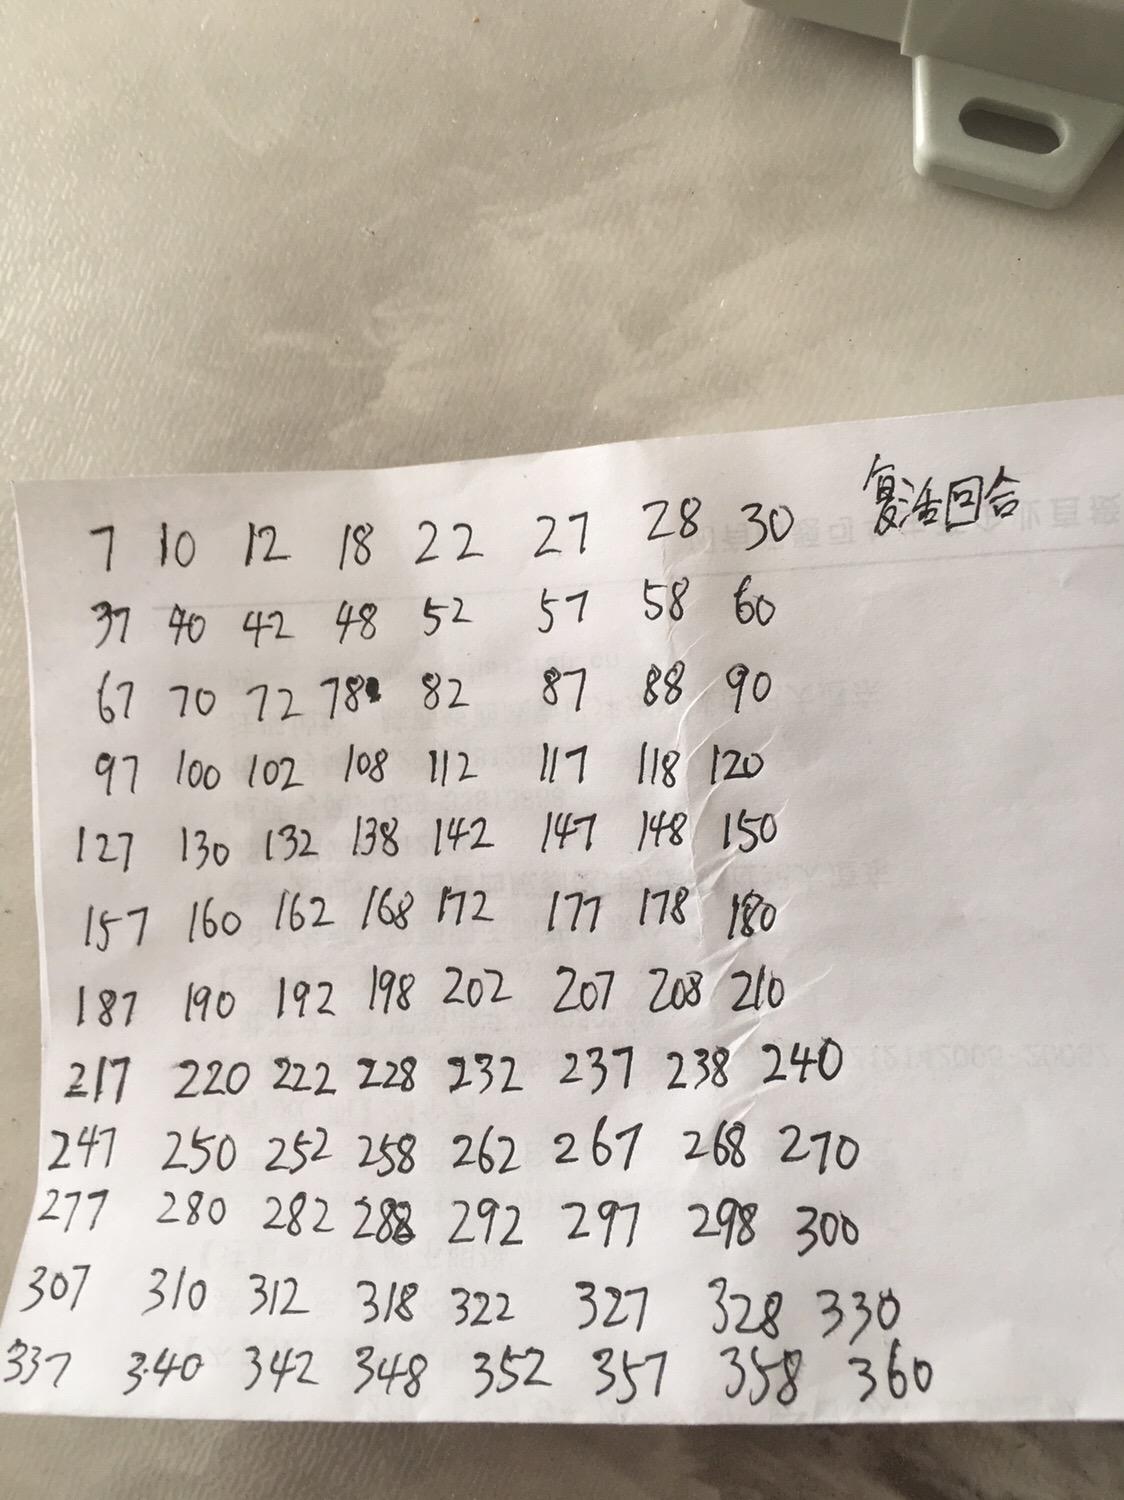 7 10 12 18 22 27 28 30 复活回合
37 40 42 48 52 57 58 60
67 70 72 78 82 87 88 90
97 100 102 108 112 117 118 120
127 130 132 138 142 147 148 150
157 160 162 168 172 177 178 180
187 190 192 198 202 207 208 210
217 220 222 228 232 237 238 240
247 250 252 258 262 267 268 270
277 280 282 288 292 297 298 300
307 310 312 318 322 327 328 330
337 340 342 348 352 357 358 360